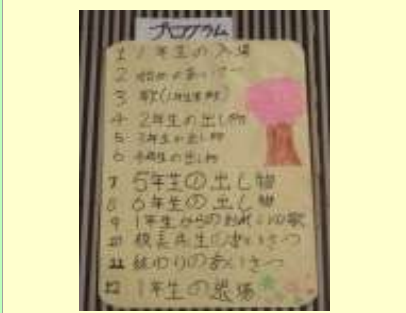 プログラム
1 1年生の入場
2 始めのあいさつ
3 歌(1年生))
4 2年生の出し物
5 3年生の出し物
6 4年生の出し物
7 5年生の出し物
8 6年生の出し物
9 1年生からのお礼の歌
10 校長先生のあいさつ
11 終わりのあいさつ
12 1年生の退場